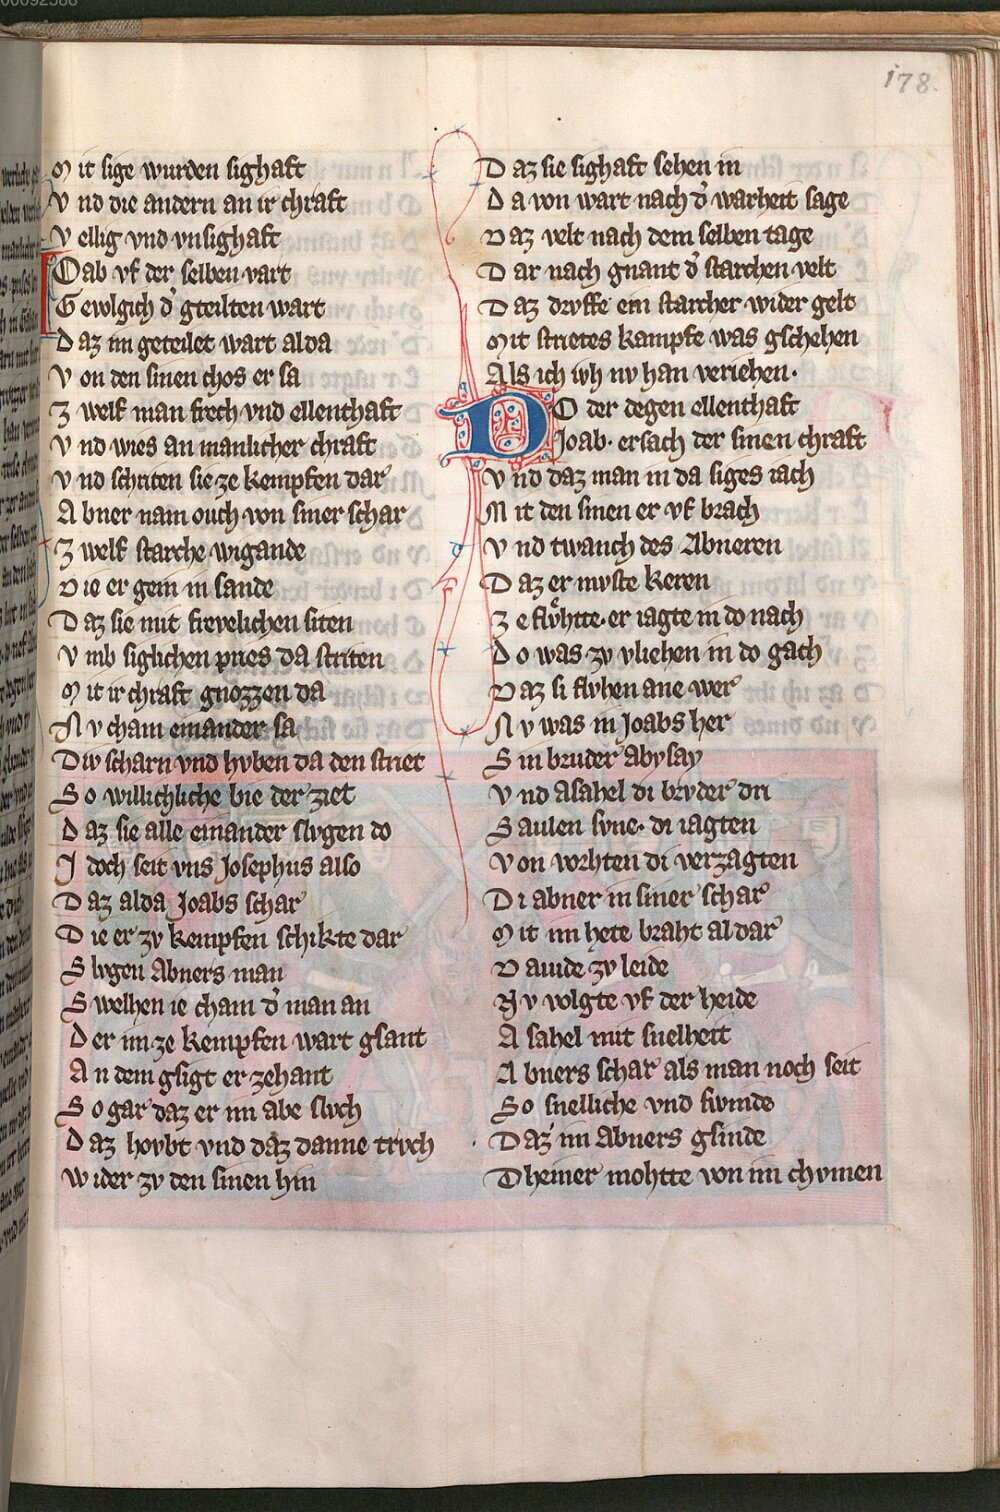 178.
M it sige wurden sighaft
V nd die andern an ir chraft
V ellig vnd vnsighaft
Joab vf der selben vart
G ewlgich d᾽ gteilten wart
D az im geteilet wart alda
V on den sinen chos er sa
Z welf man frech vnd ellenthaft
V nd wies an manlicher chraft
V nd schriten sie ze kempfen dar
A bner nam ouch von siner schar
Z welf starche wigande
D ie er gein in sande
D az sie mit frevelichen siten
V mb siglichen pries da striten
M it ir chraft gnozzen da
N v cham einander sa
Div scharn vnd hvben da den striet
S o willichliche bie der ziet
D az sie alle einander slvgen do
J doch seit vns Josephus also
D az alda Joabs schar
D ie er zv kempfen schikte dar
S lvgen Abners man
S welhen ie cham d᾽ man an
D er im ze kempfen wart gsant
A n dem gsigt er zehant
S o gar daz er im abe slvch
D az hovbt vnd daz danne trvch
W ider zv den sinen hin
D az sie sighaft sehen in
D a von wart nach d᾽ warheit sage
D az velt nach dem selben tage
D ar nach gnant d᾽ starchen velt
D az drvffe ein starcher wider gelt
M it strietes kampfe was gschehen
A ls ich iv̍h nv han veriehen·
DO der degen ellenthaft
Joab· ersach der sinen chraft
V nd daz man in da siges iach
M it den sinen er vf brach
V nd twanch des Abneren
D az er mvste keren
Z e flv̍htte· er iagte in do nach
D o was zv vliehen in do gach
D az si flvhen ane wer
N v was in Joabs her
S in bruder abysay
V nd Asahel di brvder dri
S aulen svne· di iagten
V on vorhten di verzagten
D i abner in siner schar
M it im hete braht al dar
D auide zv leide
N v volgte vf der heide
A sahel mit snelheit
A bners schar als man noch seit
S o snelliche vnd swinde
D az im Abners gsinde
D heiner mohtte von im chvmen